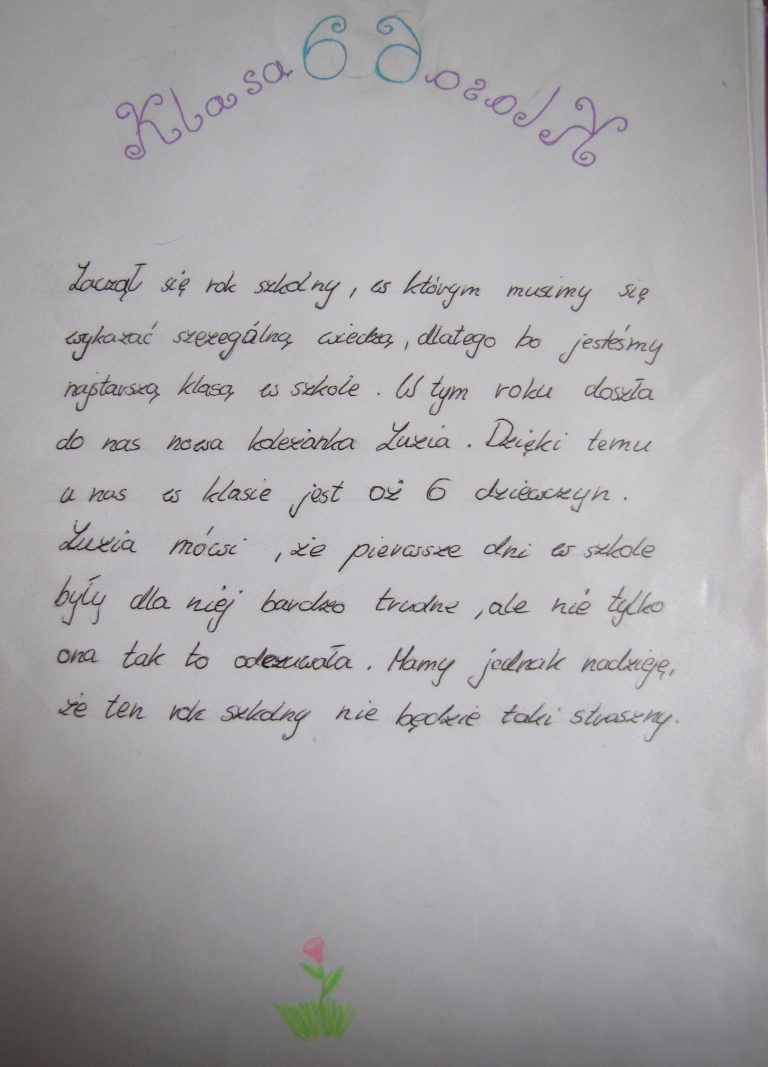 Klasa 6 6 Klasa
Zaczął się rok szkolny, w którym musimy się
wykazać szczególną wiedzą, dlatego bo jesteśmy
najstarszą klasą w szkole. W tym roku doszła
do nas nowa koleżanka Luzia. Dzięki temu
u nas w klasie jest aż 6 dziewczyn.
Luzia mówi, że pierwsze dni w szkole
były dla niej bardzo trudne, ale nie tylko
ona tak to odczuwała. Mamy jednak nadzieję,
że ten rok szkolny nie będzie taki straszny.